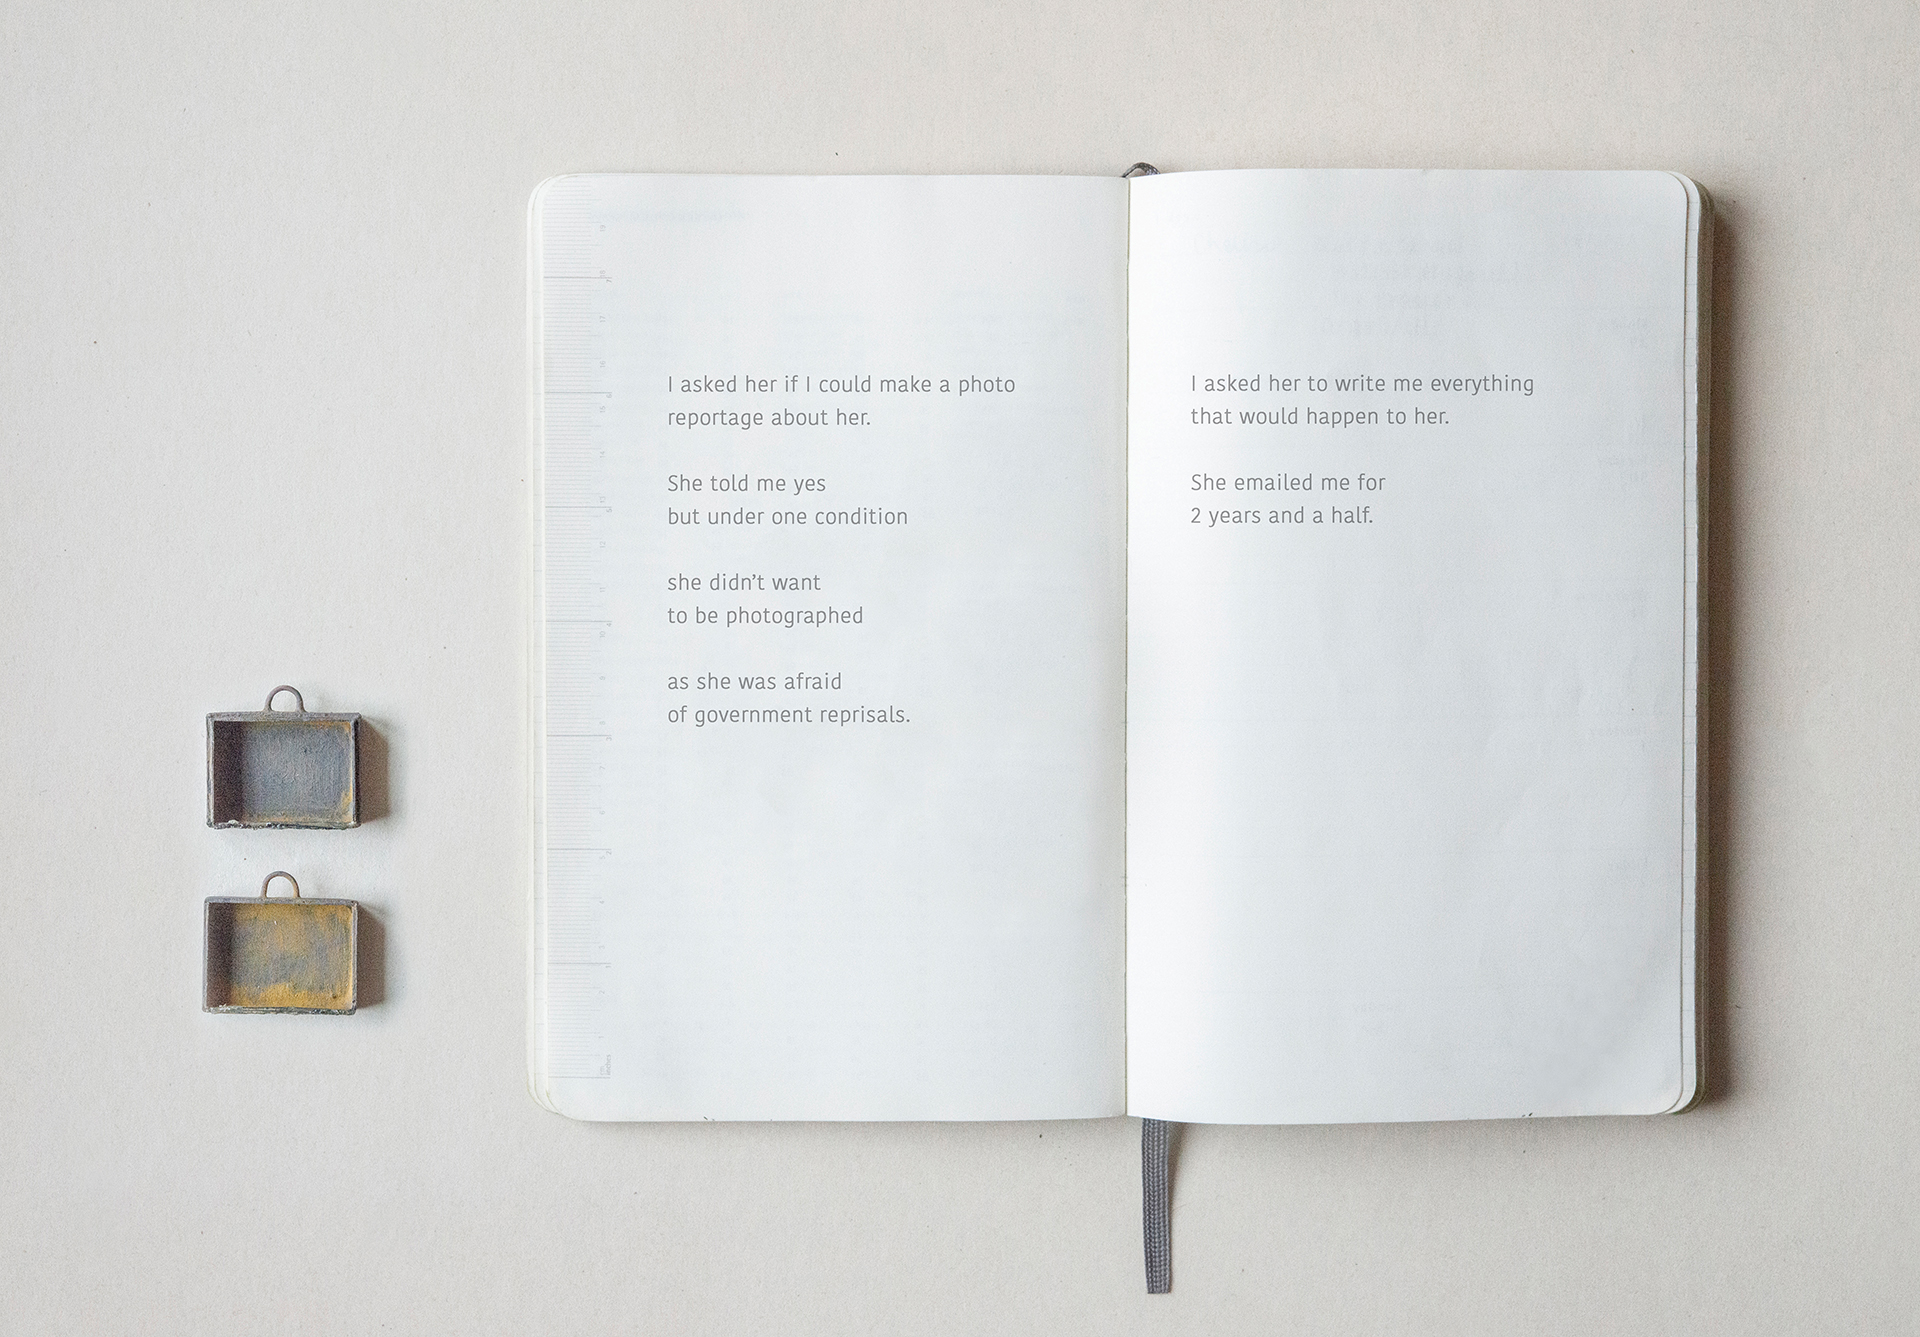 I asked her if I could make a photo
reportage about her.
She told me yes
but under one condition
she didn’t want
to be photographed
as she was afraid
of government reprisals.
I asked her to write me everything
that would happen to her.
She emailed me for
2 years and a half.